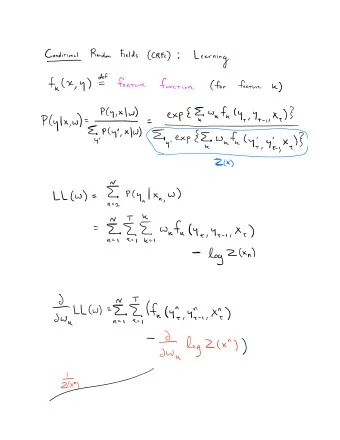 Conditional Random Fields (CRFs) : Learning
f_k(x, y) def= feature function (for feature k)
P(y|x,w) = P(y,x|w) / Σ_y' P(y',x|w) = exp{Σ_k w_k f_k(y_τ, y_τ-1, x_τ)} / Σ_y' exp{Σ_k w_k f_k(y'_τ, y'_τ-1, x_τ)}
Z(x)
LL(w) = Σ_n=1^N P(y_n | x_n, w)
= Σ_n=1^N Σ_τ=1^T Σ_k=1^K w_k f_k(y_τ, y_τ-1, x_τ)
- log Z(x_n)
∂/∂w_k LL(w) = Σ_n=1^N Σ_τ=1^T (f_k(y_τ^n, y_τ-1^n, x_τ^n)
- ∂/∂w_k log Z(x^n))
1/Z(x^n)